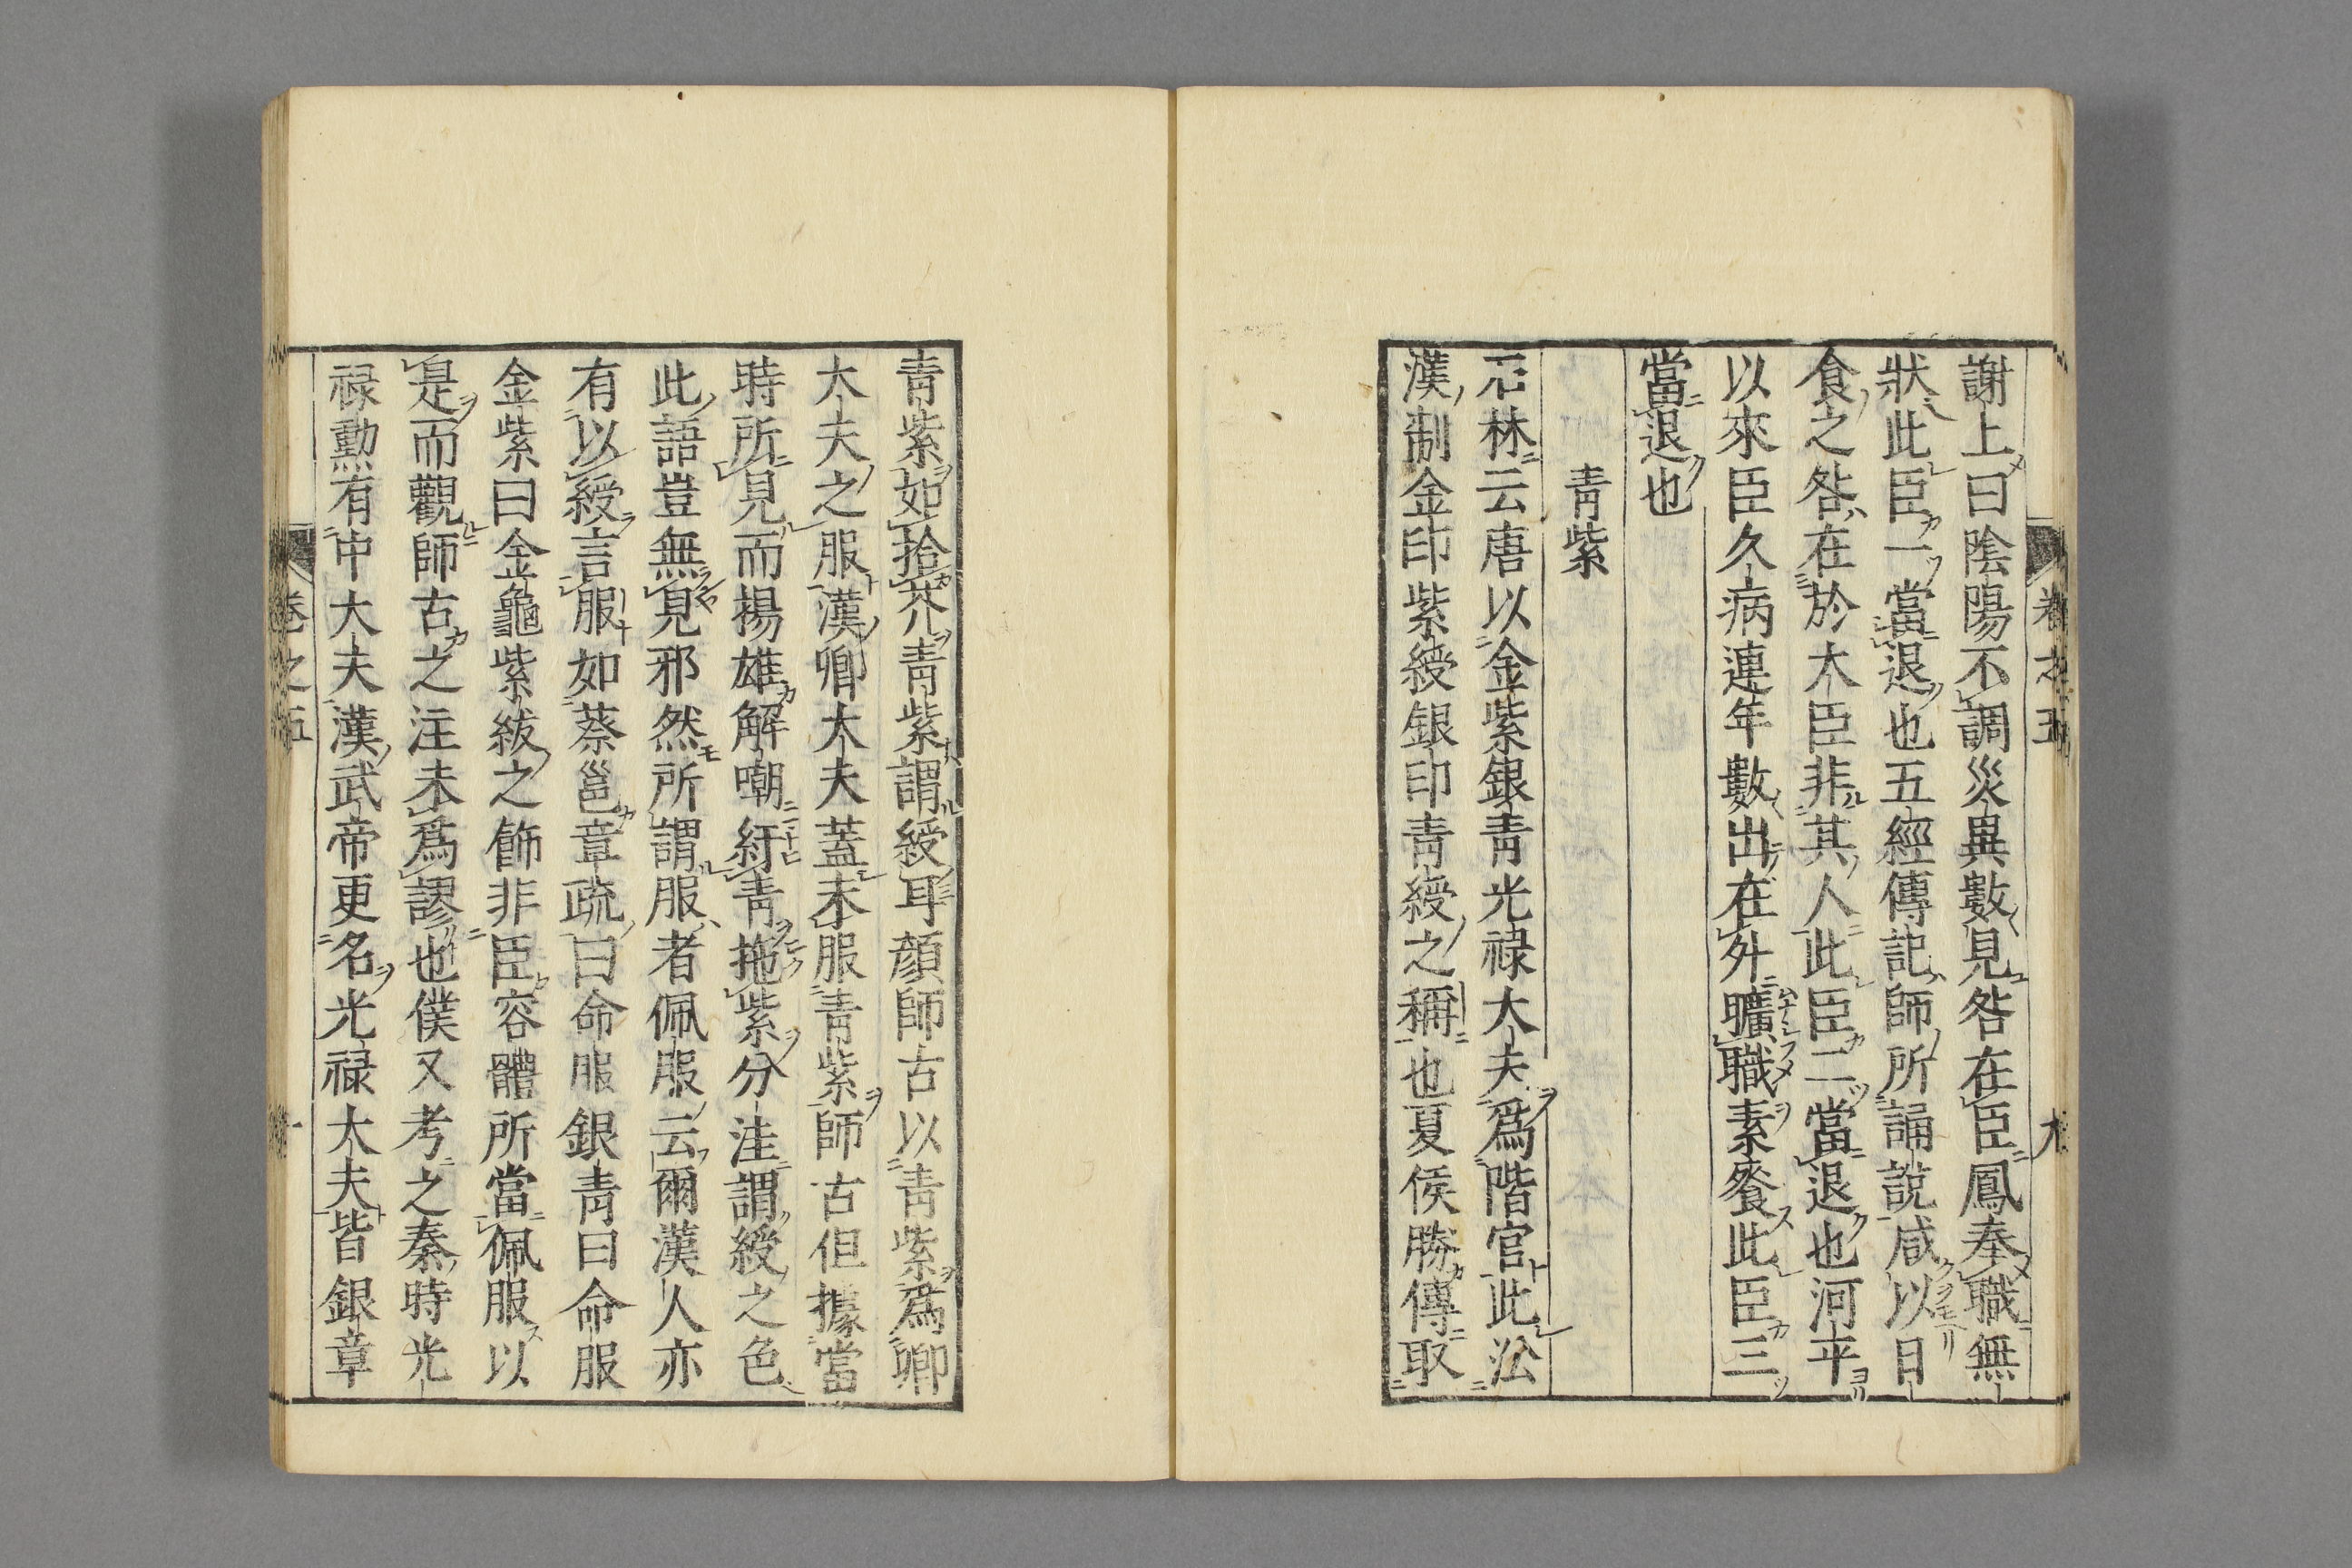 卷之五 九
謝上曰陰陽不調災異數見咎在臣鳳奉職無
狀此臣一當退也五經傳記師所誦說咸以日
食之咎在於大臣非其人此臣二當退也河平
以來臣久病連年數出在外曠職素餐此臣三
當退也
青紫
石林云唐以金紫銀青光祿大夫爲階官此沿
漢制金印紫綬銀印青綬之稱也夏侯勝傳取
青紫如拾芥青紫謂綬耳顏師古以青紫爲卿
大夫之服漢卿大夫蓋未服青紫師古但據當
時所見而揚雄解嘲紆青拖紫分注謂綬之色
此語豈無見邪然所謂服者佩服云爾漢人亦
有以綬言服如蔡邕章疏曰命服銀青曰命服
金紫曰金龜紫紱之飾非臣容體所當佩服以
是而觀師古之注未爲謬也僕又考之秦時光
祿勳有中大夫漢武帝更名光祿大夫皆銀章
卷之五